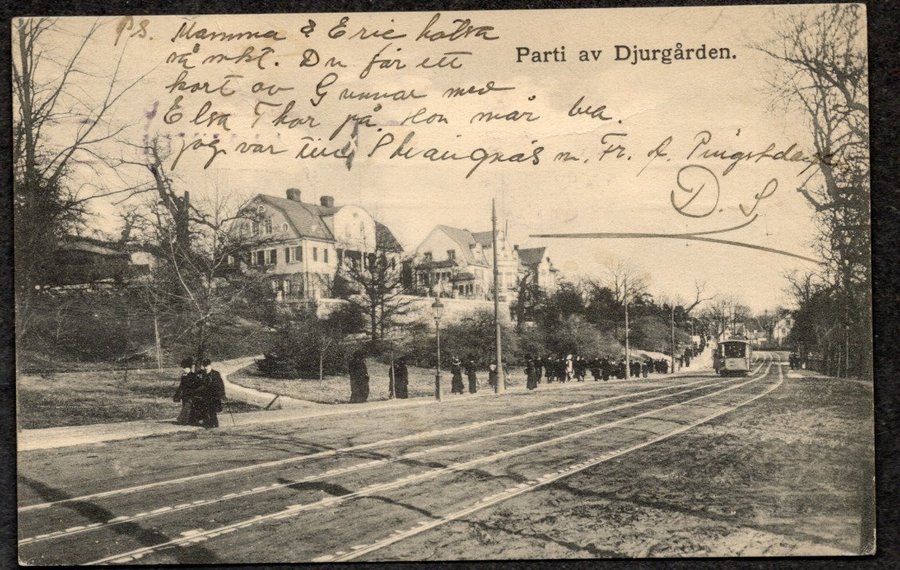 PS. Mamma & Eric hälsa
så mkt. Du får ett
kort av Gunnar med
Elsa Thor på. Hon mår bra.
jag var inne m. Fr. A. Pingstdag
D. S
Parti av Djurgården.